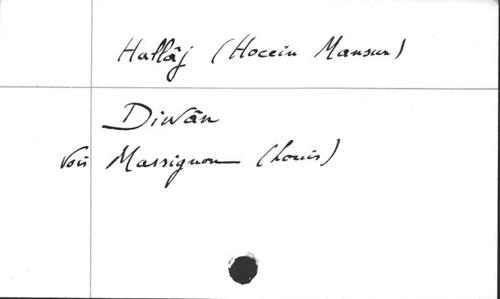 Hallâj (Hocein Mansur)
Diwân
Voir Massignon (Louis)